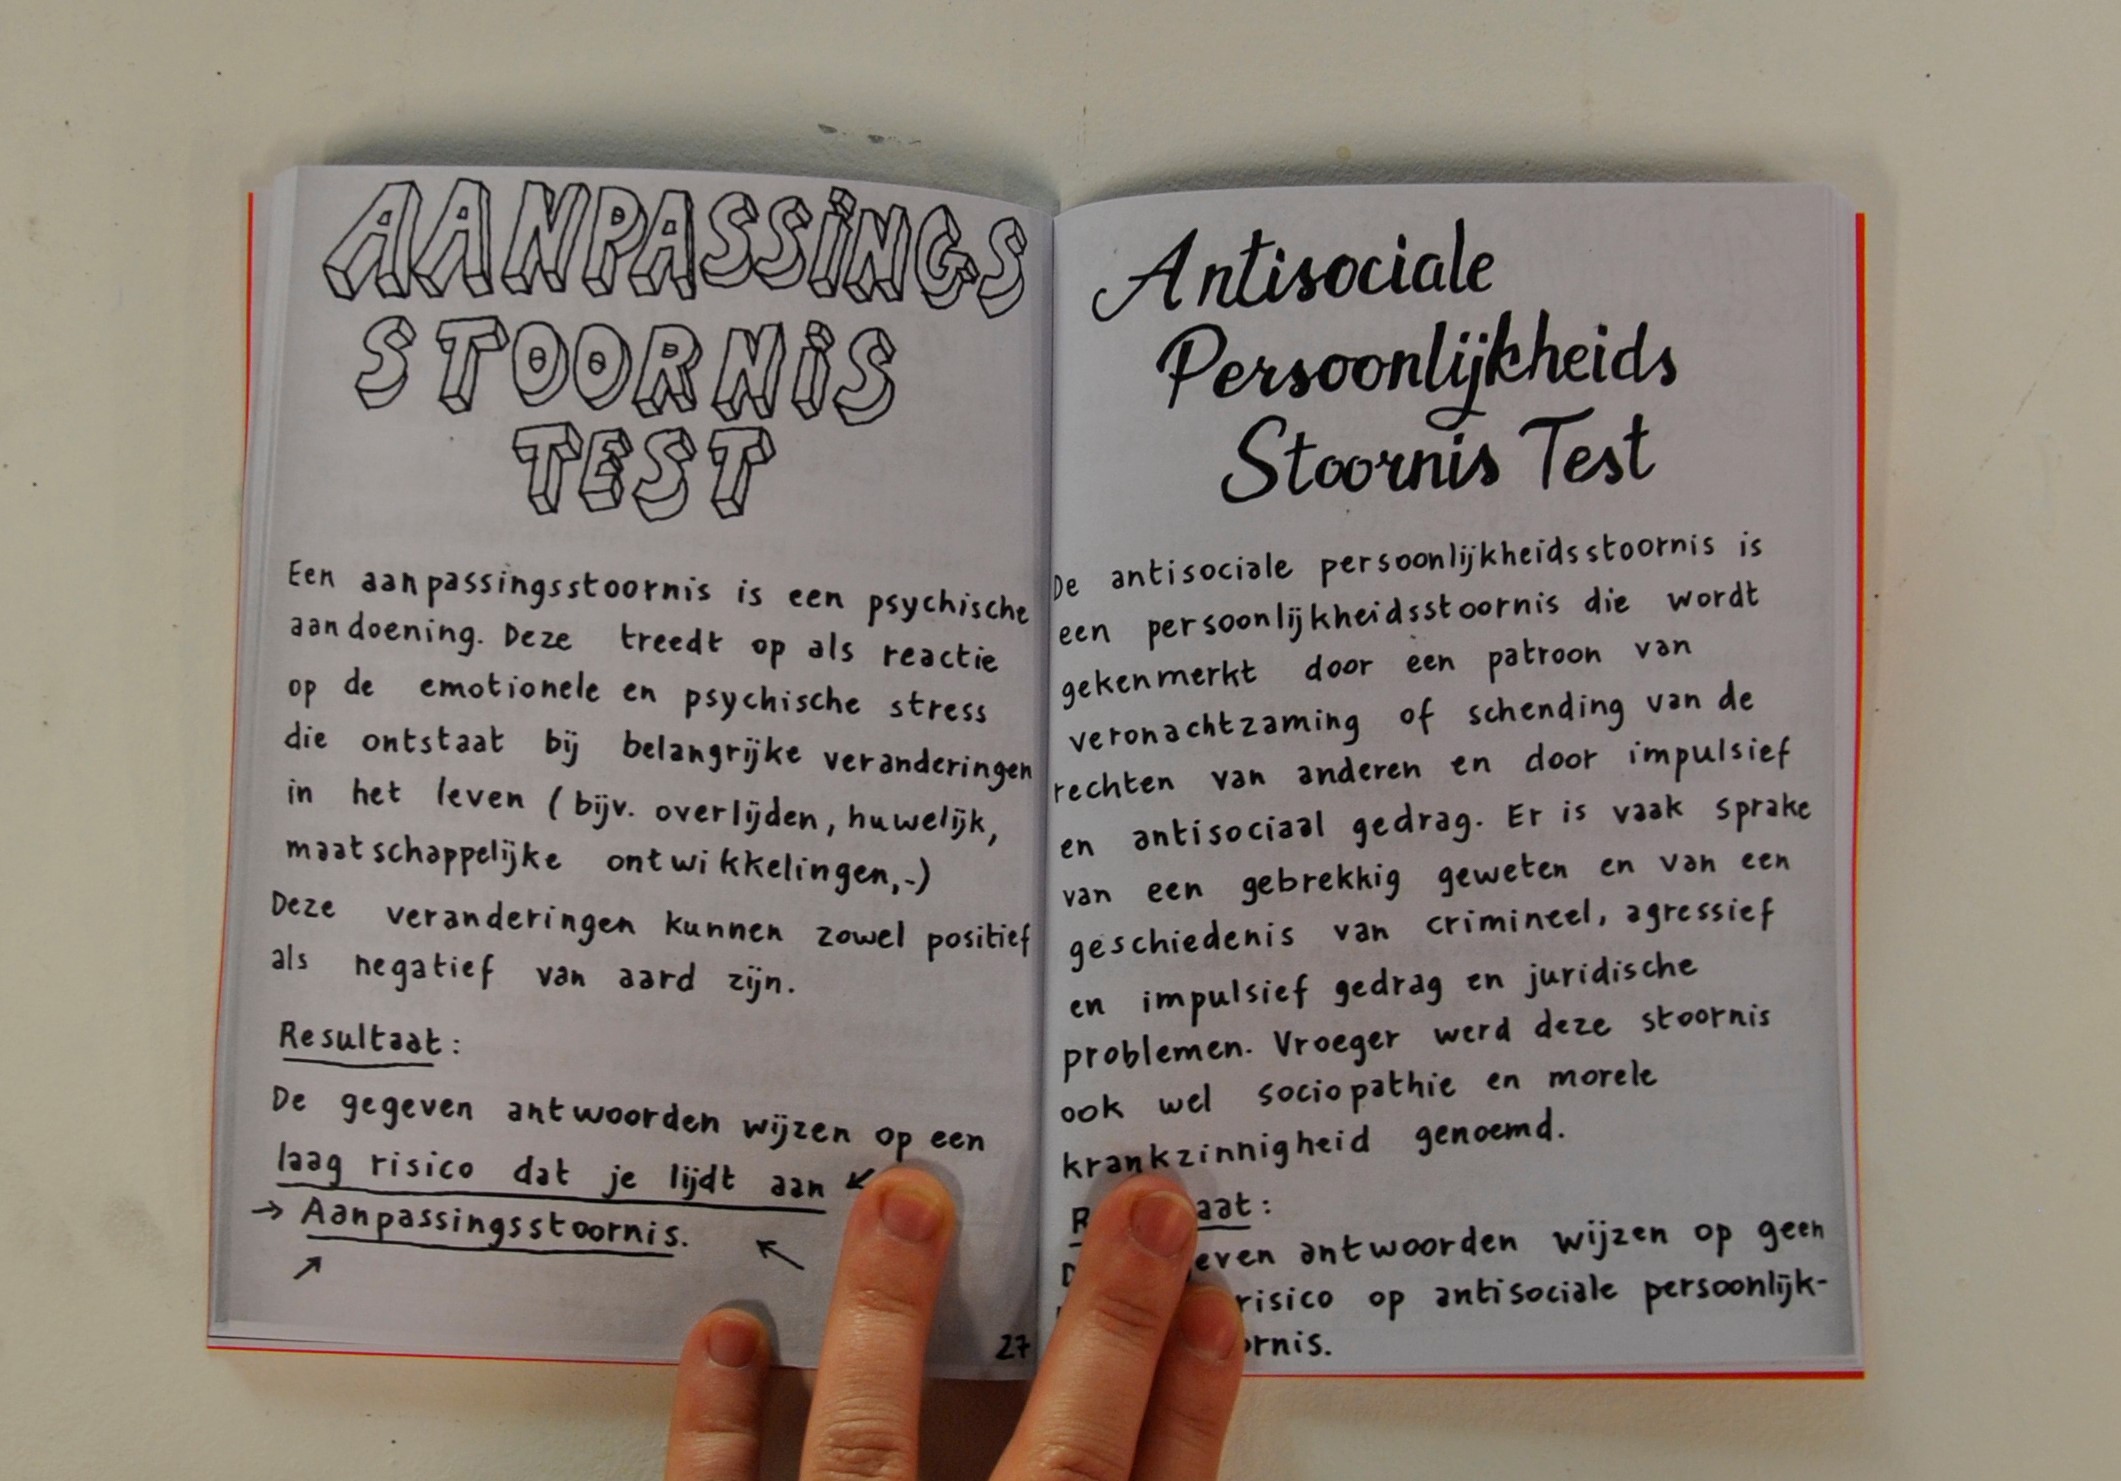 AANPASSINGS
STOORNIS
TEST
Een aanpassingsstoornis is een psychische
aandoening. Deze treedt op als reactie
op de emotionele en psychische stress
die ontstaat bij belangrijke veranderingen
in het leven (bijv. overlijden, huwelijk,
maatschappelijke ontwikkelingen,-)
Deze veranderingen kunnen zowel positief
als negatief van aard zijn.
Resultaat:
De gegeven antwoorden wijzen op een
laag risico dat je lijdt aan
→ Aanpassingsstoornis.
27
Antisociale
Persoonlijkheids
Stoornis Test
De antisociale persoonlijkheidsstoornis is
een persoonlijkheidsstoornis die wordt
gekenmerkt door een patroon van
veronachtzaming of schending van de
rechten van anderen en door impulsief
en antisociaal gedrag. Er is vaak sprake
van een gebrekkig geweten en van een
geschiedenis van crimineel, agressief
en impulsief gedrag en juridische
problemen. Vroeger werd deze stoornis
ook wel sociopathie en morele
krankzinnigheid genoemd.
antwoorden wijzen op geen
risico op antisociale persoonlijk-